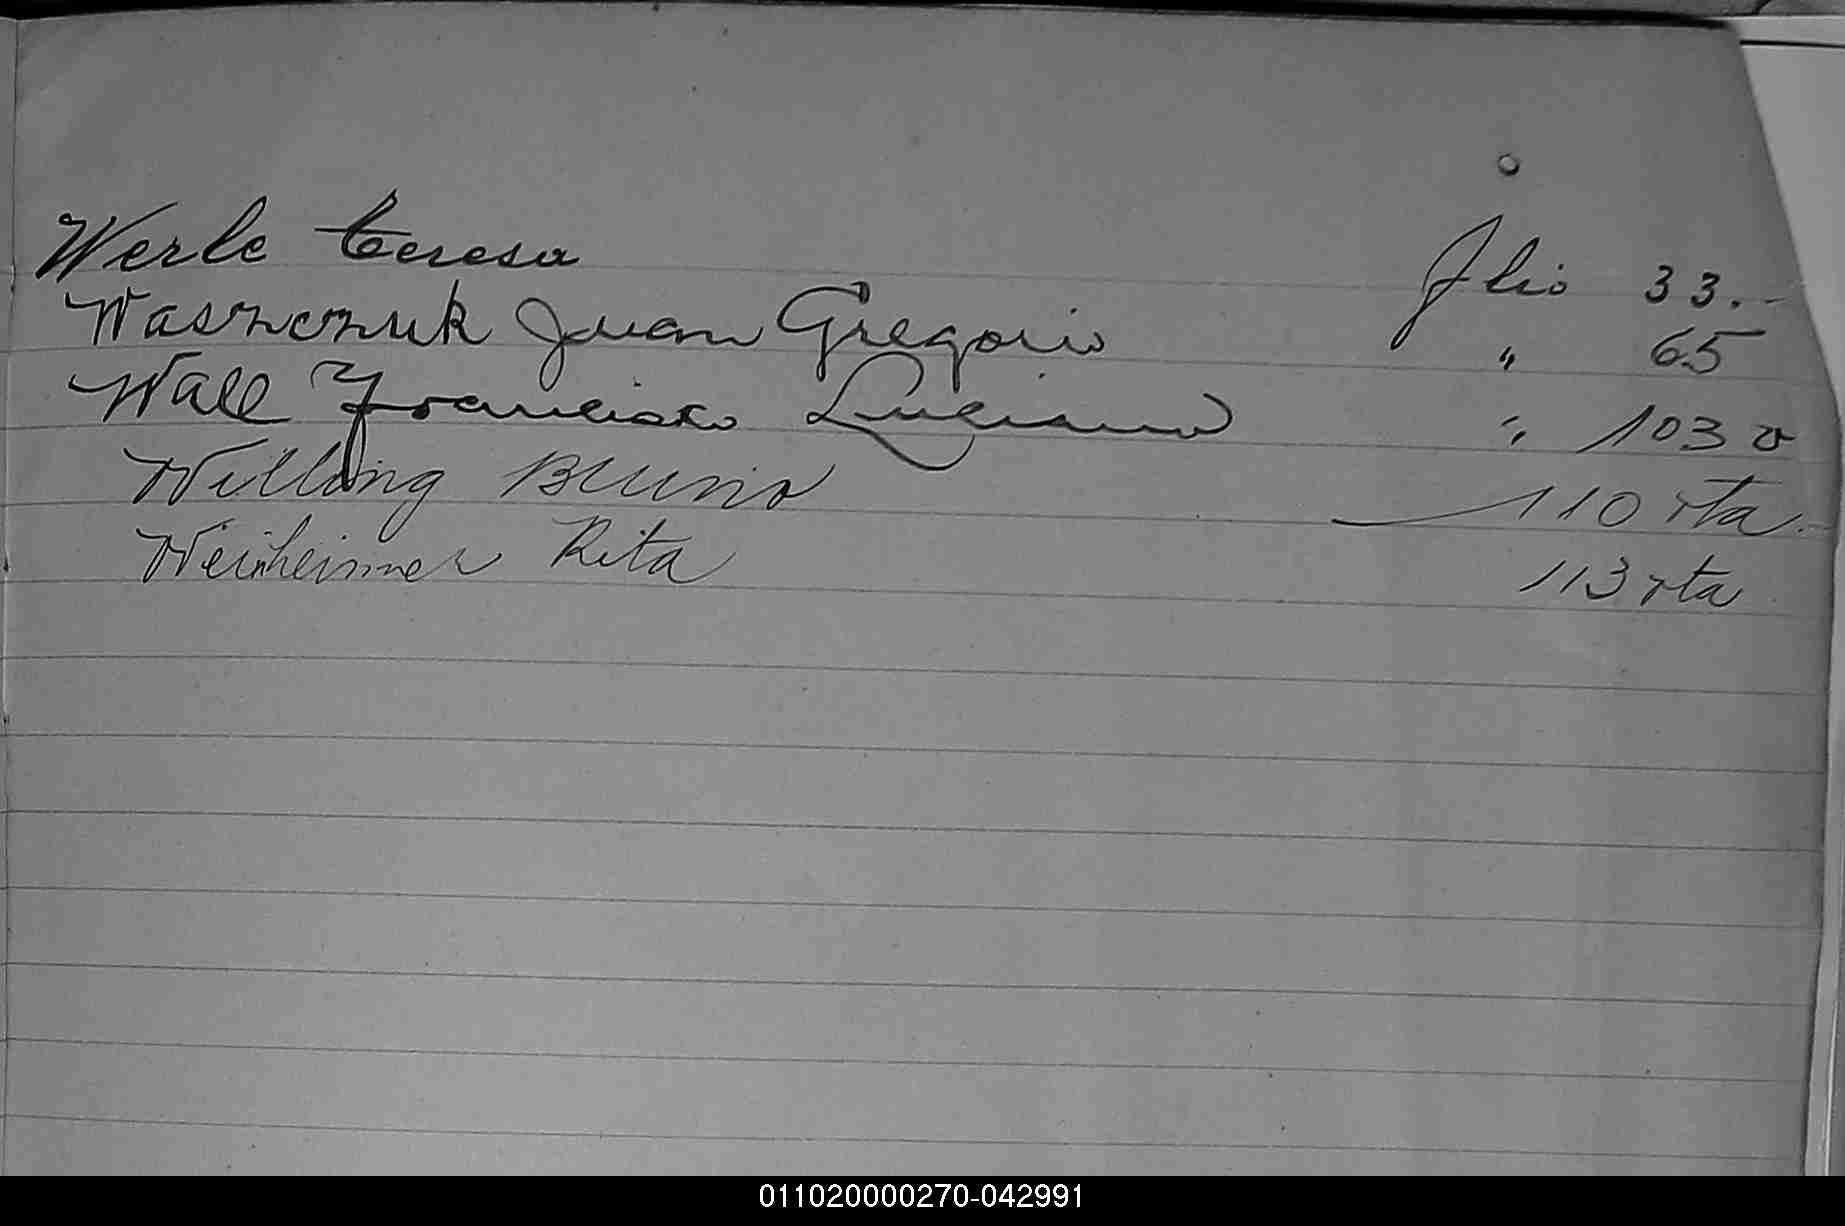 Werle Teresa flio 33.-
Wasznczuk Juan Gregorio " 65
Wall Francisco Luciano " 103 v
Willing Bruno 110 rta.
Weinheimer Rita 113 rta
011020000270-042991